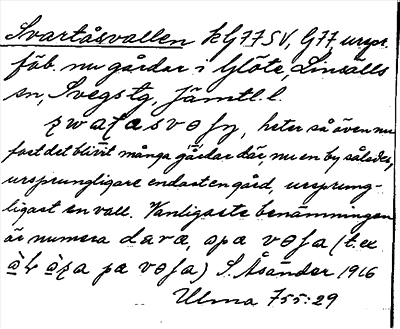 Svartåsvallen kG77SV, G77, urspr.
fäb. nu gårdar i Glöte, Linsälls
sn, Svegs tg. Jämtl. l.
heter så även nu
fast det blivit många gårdar där, nu en by således,
ursprungligare endast en gård, ursprung-
ligast en vall. Vanligaste benämningen
är numera (t. ex.
S. Åsander 1916
Ulma 755:29